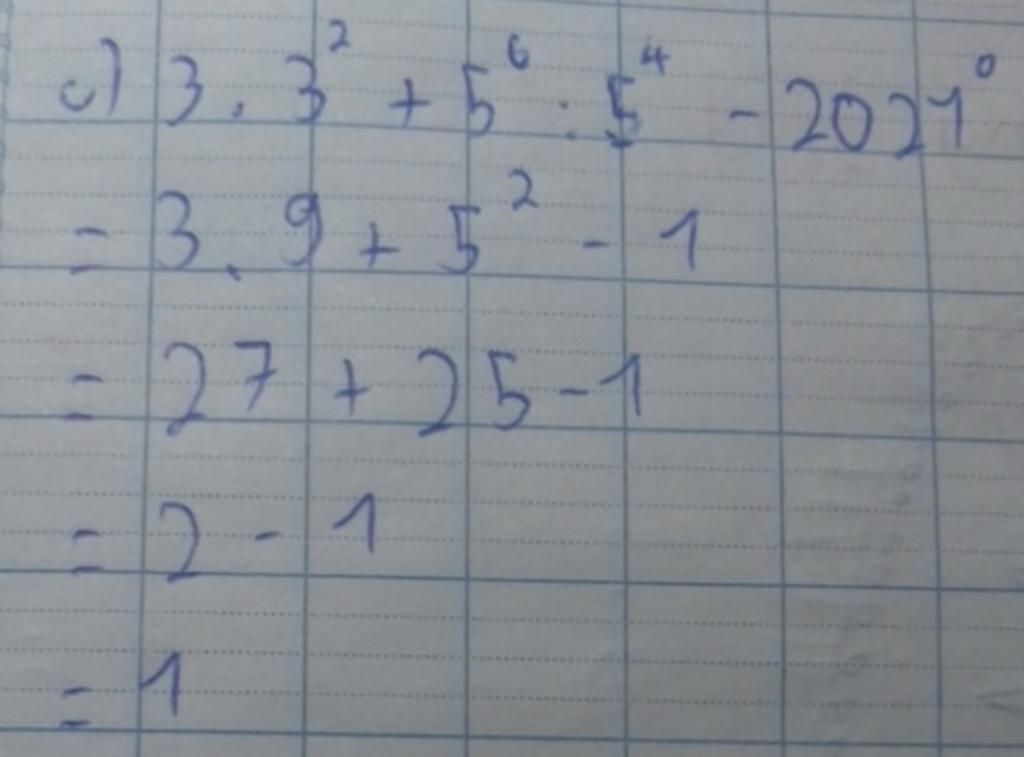 c) 3 . 3² + 5⁶ : 5⁴ - 2021⁰
= 3 . 9 + 5² - 1
= 27 + 25 - 1
= 2 - 1
= 1